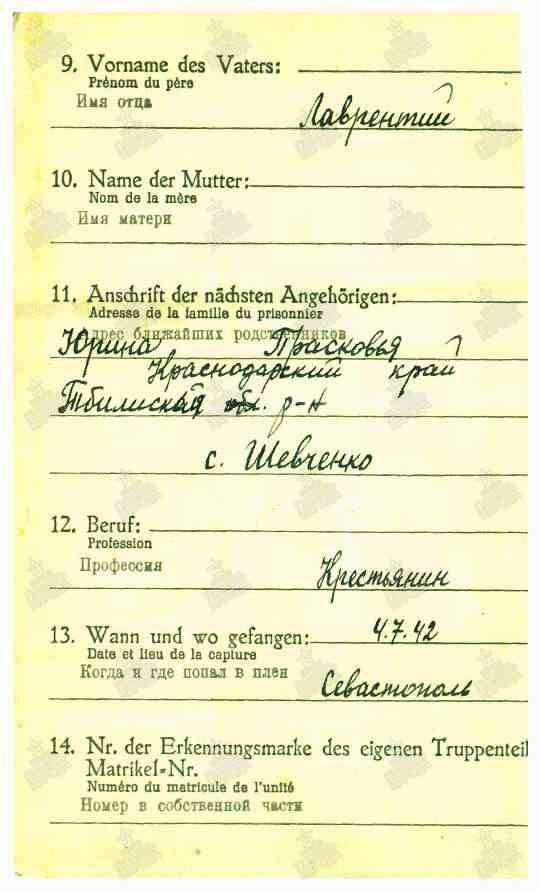 9. Vorname des Vaters:
Prénom du père
Имя отца
Лаврентий
10. Name der Mutter:
Nom de la mère
Имя матери
11. Anschrift der nächsten Angehörigen:
Adresse de la famille du prisonnier
Адрес ближайших родственников
Юрина Прасковья
Краснодарский край
Тбилиский обл. р-н
с. Шевченко
12. Beruf:
Profession
Профессия
Крестьянин
13. Wann und wo gefangen: 4.7.42
Date et lieu de la capture
Когда и где попал в плен
Севастополь
14. Nr. der Erkennungsmarke des eigenen Truppenteil
Matrikel=Nr.
Numéro du matricule de l'unité
Номер в собственной части